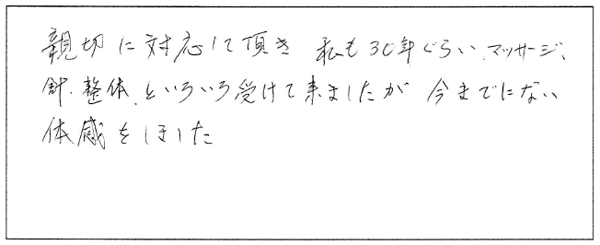 親切に対応して頂き 私も30年ぐらい、マッサージ、
針、整体、といろいろ受けて来ましたが 今までにない
体感をしました